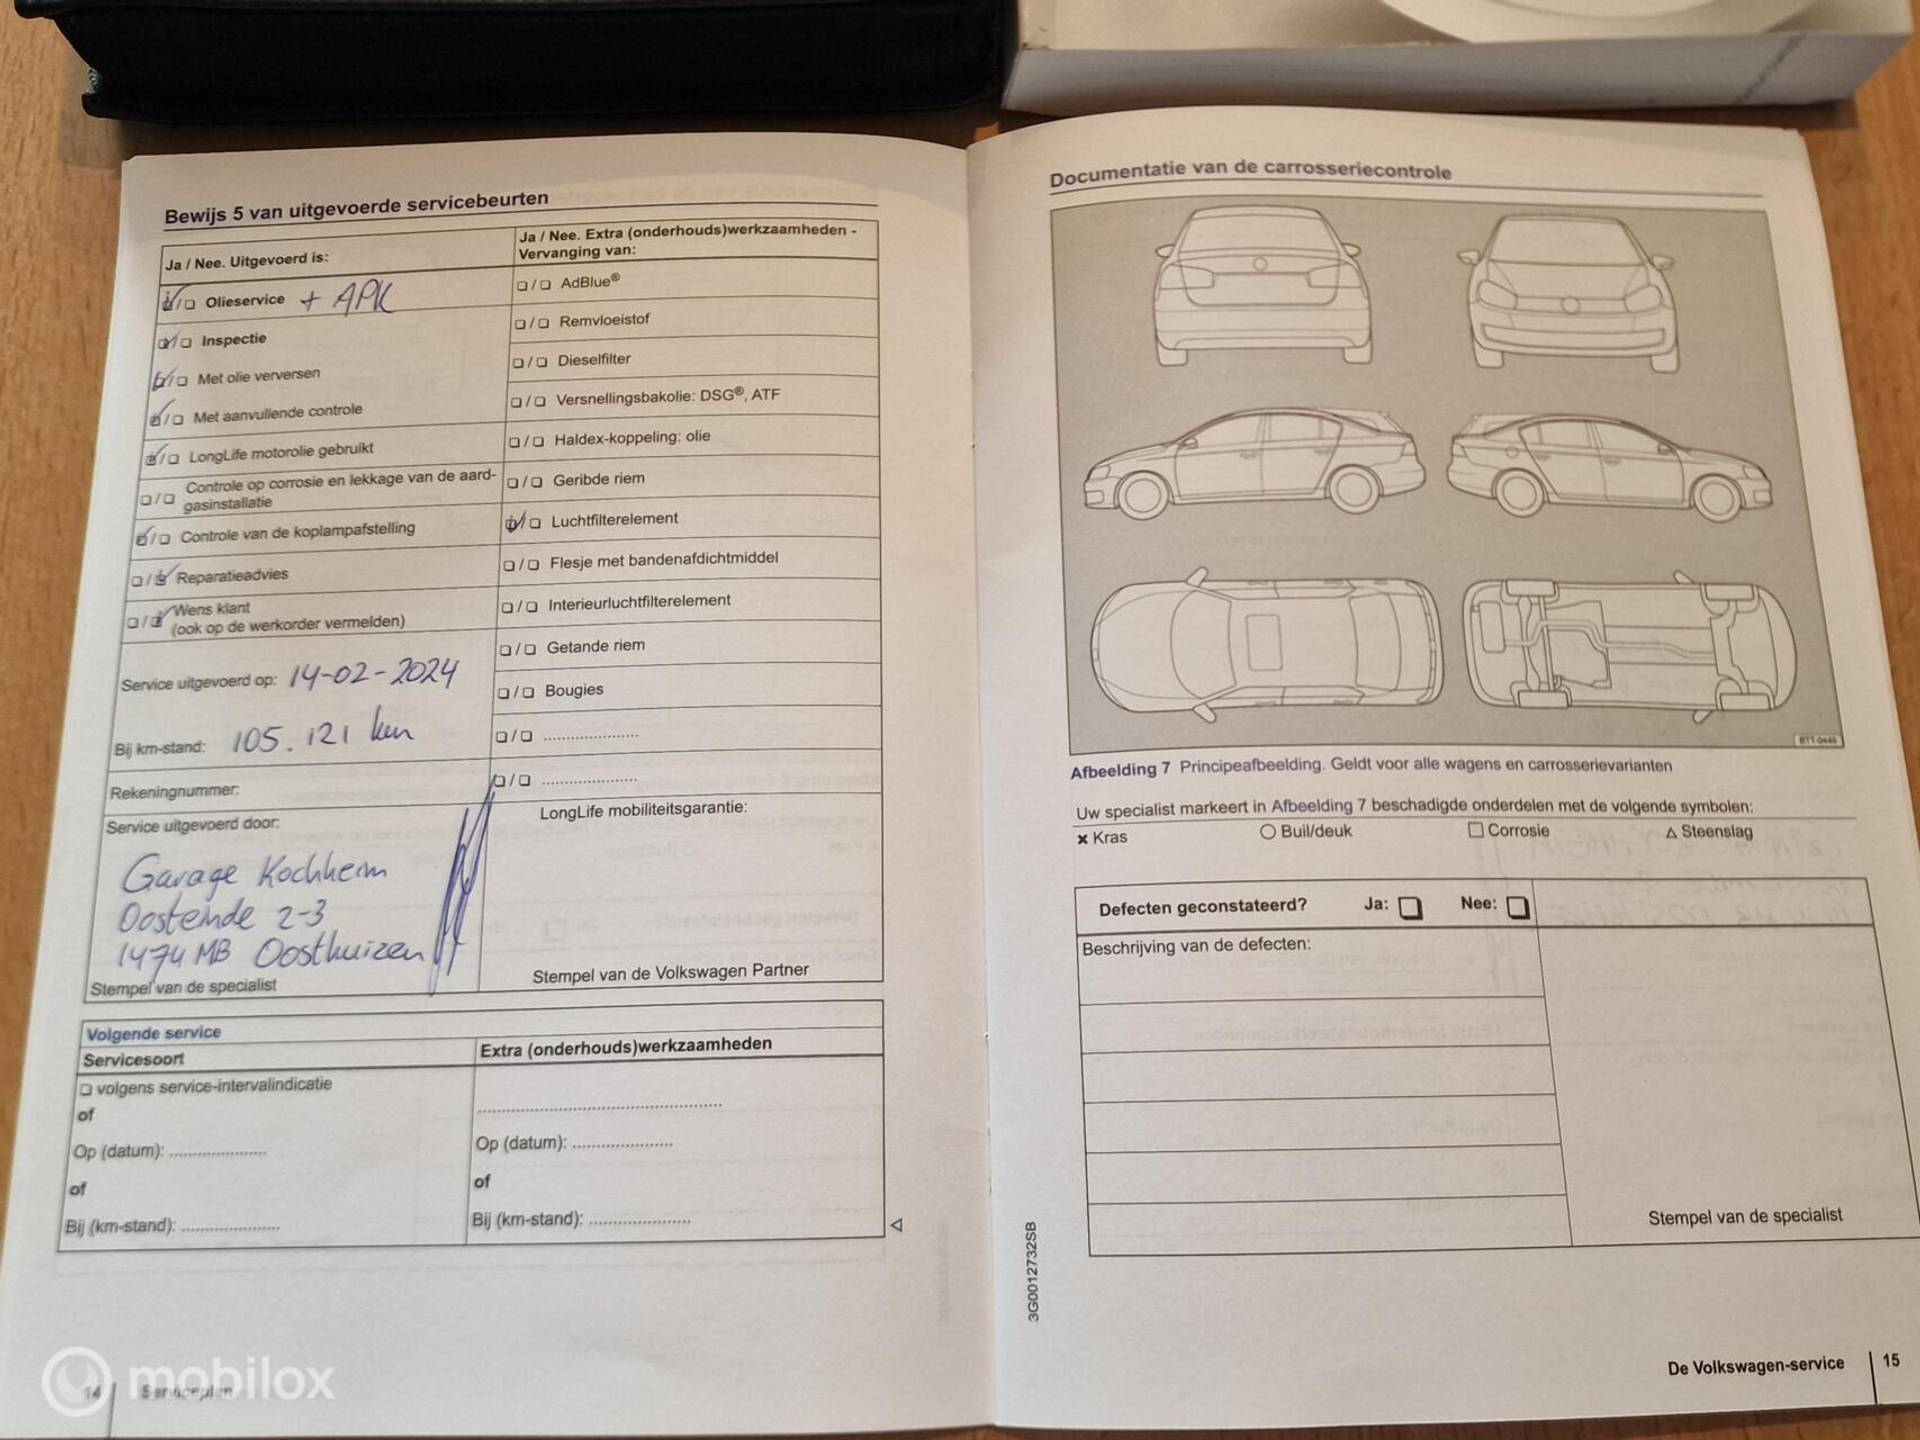 Bewijs 5 van uitgevoerde servicebeurten
Ja / Nee. Uitgevoerd is:
Olieservice + APK
Inspectie
Met olie verversen
Met aanvullende controle
LongLife motorolie gebruikt
Controle op corrosie en lekkage van de aard-
gasinstallatie
Controle van de koplampafstelling
Reparatieadvies
Wens klant
(ook op de werkorder vermelden)
Service uitgevoerd op: 14-02-2024
Bij km-stand: 105.121 km
Rekeningnummer:
Service uitgevoerd door:
Garage Kochheim
Oosteinde 2-3
1474 MB Oosthuizen
Stempel van de specialist
Ja / Nee. Extra (onderhouds)werkzaamheden -
Vervanging van:
AdBlue®
Remvloeistof
Dieselfilter
Versnellingsbakolie: DSG®, ATF
Haldex-koppeling: olie
Geribde riem
Luchtfilterelement
Flesje met bandenafdichtmiddel
Interieurluchtfilterelement
Getande riem
Bougies
LongLife mobiliteitsgarantie:
Stempel van de Volkswagen Partner
Volgende service
Servicesoort
volgens service-intervalindicatie
of
Op (datum): ....................
of
Bij (km-stand): ....................
Extra (onderhouds)werkzaamheden
Op (datum): ....................
of
Bij (km-stand): ....................
14 Serviceplan
mobilox
Documentatie van de carrosseriecontrole
Afbeelding 7 Principeafbeelding. Geldt voor alle wagens en carrosserievarianten
Uw specialist markeert in Afbeelding 7 beschadigde onderdelen met de volgende symbolen:
Kras Buil/deuk Corrosie Steenslag
Defecten geconstateerd? Ja: Nee:
Beschrijving van de defecten:
Stempel van de specialist
3G0012732SB
De Volkswagen-service 15